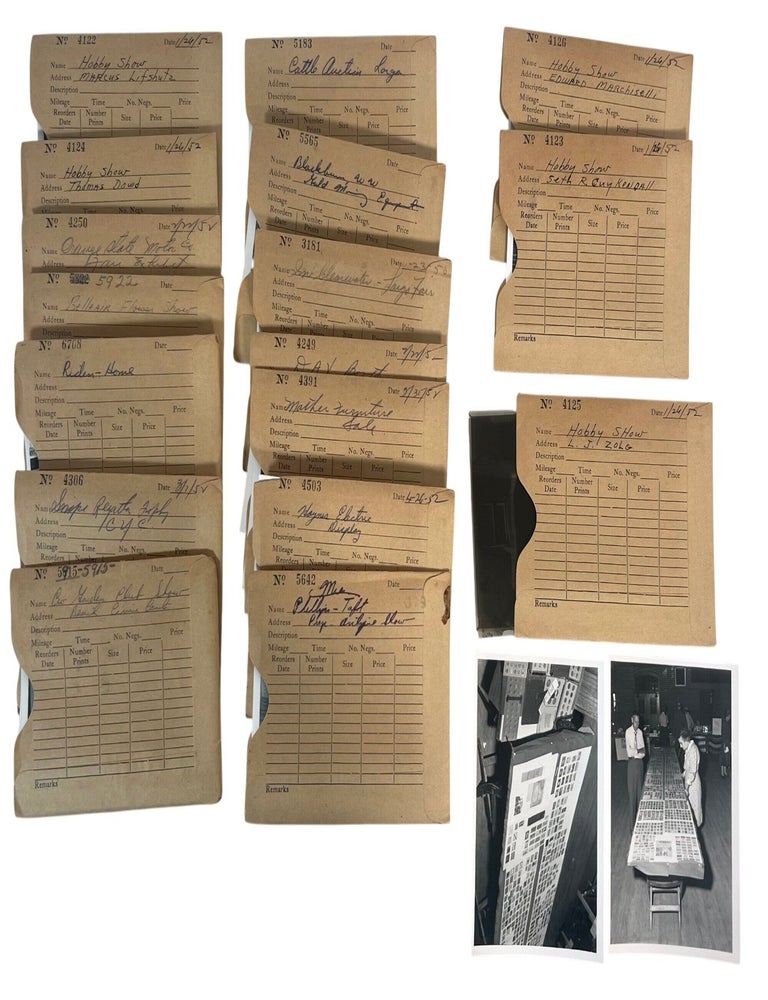 Nº 4122 Date 1/26/52
Name Hobby Show
Address Marcus Lifshutz
Description
Mileage Time No. Negs. Price
Reorders Number Size Price
Date Prints
Nº 4124 Date 1/26/52
Name Hobby Show
Address Thomas Dowd
Description
Mileage Time No. Negs. Price
Reorders Number
Nº 4250 Date
Name Orange State Motor Co
Address
Description
5922
Name Belleair Flower Show
Address
Description
Mileage Time No. Negs. Price
Nº 6708 Date
Name Riden-Home
Address
Description
Mileage Time No. Negs. Price
Reorders Number Size Price
Date Prints
Nº 4306 Date
Name Regatta Trophy
Address CYC
Description
Mileage Time No. Negs. Price
Nº 5915-5915- Date
Name Garden Club Show
Address
Description
Mileage Time No. Negs. Price
Reorders Number Size Price
Date Prints
Remarks
Nº 5183 Date
Name Cattle Auction Largo
Address
Description
Mileage Time No. Negs. Price
Reorders Number Size Price
Date Prints
Nº 5565 Date
Name Blackburn W.W.
Address Gold Mining Equipment
Description
Mileage Time No. Negs. Price
Reorders Number Size Price
Date Prints
Nº 3181 Date
Name Clearwater - Largo Fair
Address
Description
Mileage Time No. Negs. Price
Reorders Number Size Price
Date Prints
Nº 4249 Date
Name DAV Booth
Nº 4391 Date
Name Mather Furniture
Address Sale
Description
Mileage Time No. Negs. Price
Reorders Number Size Price
Date Prints
Nº 4503 Date 4-26-52
Name Electric
Address Display
Description
Mileage Time No. Negs. Price
Reorders Number Size Price
Nº 5642 Date
Mrs
Name Phillips-Taft
Address Antique Show
Description
Mileage Time No. Negs. Price
Reorders Number Size Price
Date Prints
Remarks
Nº 4126 Date 1/26/52
Name Hobby Show
Address Edward Marchiselli
Description
Mileage Time No. Negs. Price
Reorders Number Size Price
Date Prints
Nº 4123 Date 1/26/52
Name Hobby Show
Address Seth R. Cuykendall
Description
Mileage Time No. Negs. Price
Reorders Number Size Price
Date Prints
Remarks
Nº 4125 Date 1/26/52
Name Hobby Show
Address L. J. Zolg
Description
Mileage Time No. Negs. Price
Reorders Number Size Price
Date Prints
Remarks